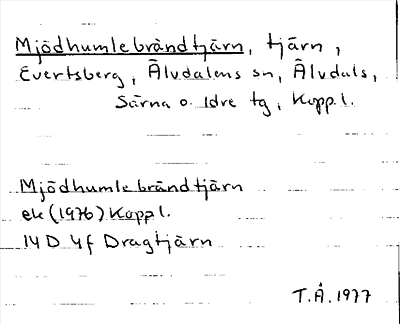 Mjödhumlebrändtjärn, tjärn,
Evertsberg, Älvdalens sn, Älvdals,
Särna o. Idre tg, Kopp.l.
Mjödhumlebrändtjärn
ek (1976) Kopp l.
14 D 4f Dragtjärn
T.Å. 1977